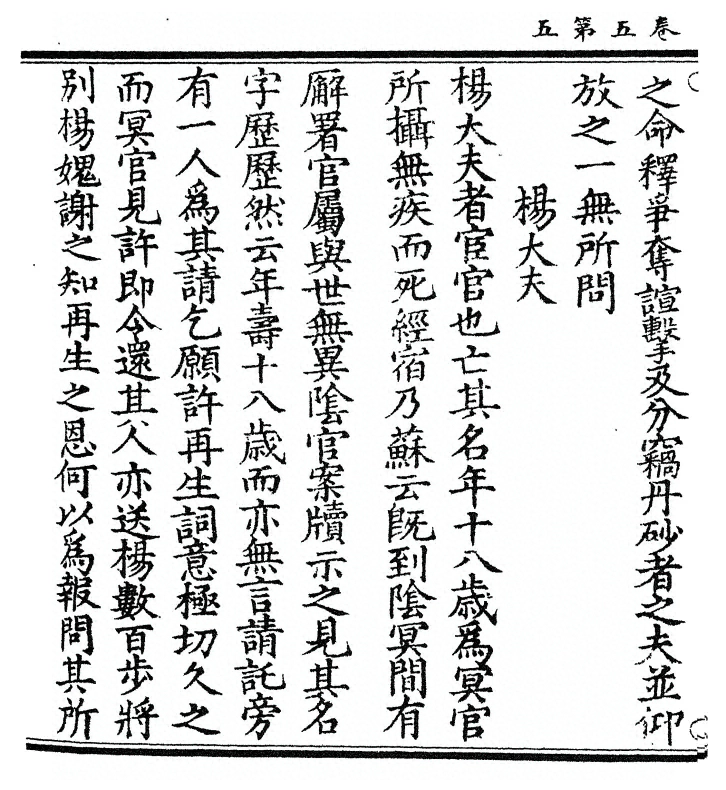 卷五第五
之命釋爭奪諠擊及分竊丹砂者之夫並仰
放之一無所問
楊大夫
楊大夫者宦官也亡其名年十八歲爲冥官
所攝無疾而死經宿乃蘇云既到陰冥間有
廨署官屬與世無異陰官案牘示之見其名
字歷歷然云年壽十八歲而亦無言請託旁
有一人爲其請乞願許再生詞意極切久之
而冥官見許即令還其人亦送楊數百步將
別楊媿謝之知再生之恩何以爲報問其所